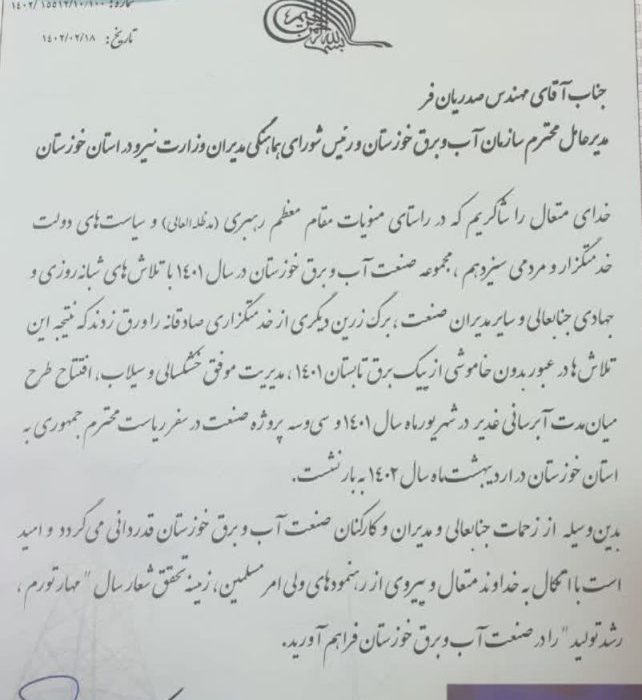 شماره: ۱۴۰۲/۱۵۵۱۲/۱۰/۱۰۰
تاریخ: ۱۴۰۲/۰۲/۱۸
جناب آقای مهندس صدریان فر
مدیرعامل محترم سازمان آب و برق خوزستان و رئیس شورای هماهنگی مدیران وزارت نیرو در استان خوزستان
خدای متعال را شاکریم که در راستای منویات مقام معظم رهبری (مدظله العالی) و سیاست‌های دولت
خدمتگزار و مردمی سیزدهم ، مجموعه صنعت آب و برق خوزستان در سال ۱۴۰۱ با تلاش‌های شبانه روزی و
جهادی جنابعالی و سایر مدیران صنعت ، برگ زرین دیگری از خدمتگزاری صادقانه را ورق زدند که نتیجه این
تلاش‌ها در عبور بدون خاموشی از پیک برق تابستان ۱۴۰۱ ، مدیریت موفق خشکسالی و سیلاب، افتتاح طرح
میان مدت آبرسانی غدیر در شهریورماه سال ۱۴۰۱ و سی و سه پروژه صنعت در سفر ریاست محترم جمهوری به
استان خوزستان در اردیبهشت‌ماه سال ۱۴۰۲ به بار نشست.
بدین وسیله از زحمات جنابعالی و مدیران و کارکنان صنعت آب و برق خوزستان قدردانی می‌گردد و امید
است با اتکال به خداوند متعال و پیروی از رهنمودهای ولی امر مسلمین، زمینه تحقق شعار سال " مهار تورم ،
رشد تولید " را در صنعت آب و برق خوزستان فراهم آورید.